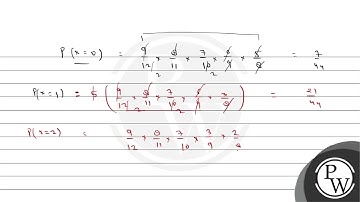 P(x=0) = 9/12 × 8/11 × 7/10 × 6/9 × 5/8 = 7/44
P(x=1) = 5 ( 9/12 × 8/11 × 7/10 × 6/9 × 3/8 ) = 21/44
P(x=2) = 9/12 × 8/11 × 7/10 × 3/9 × 2/8
PW